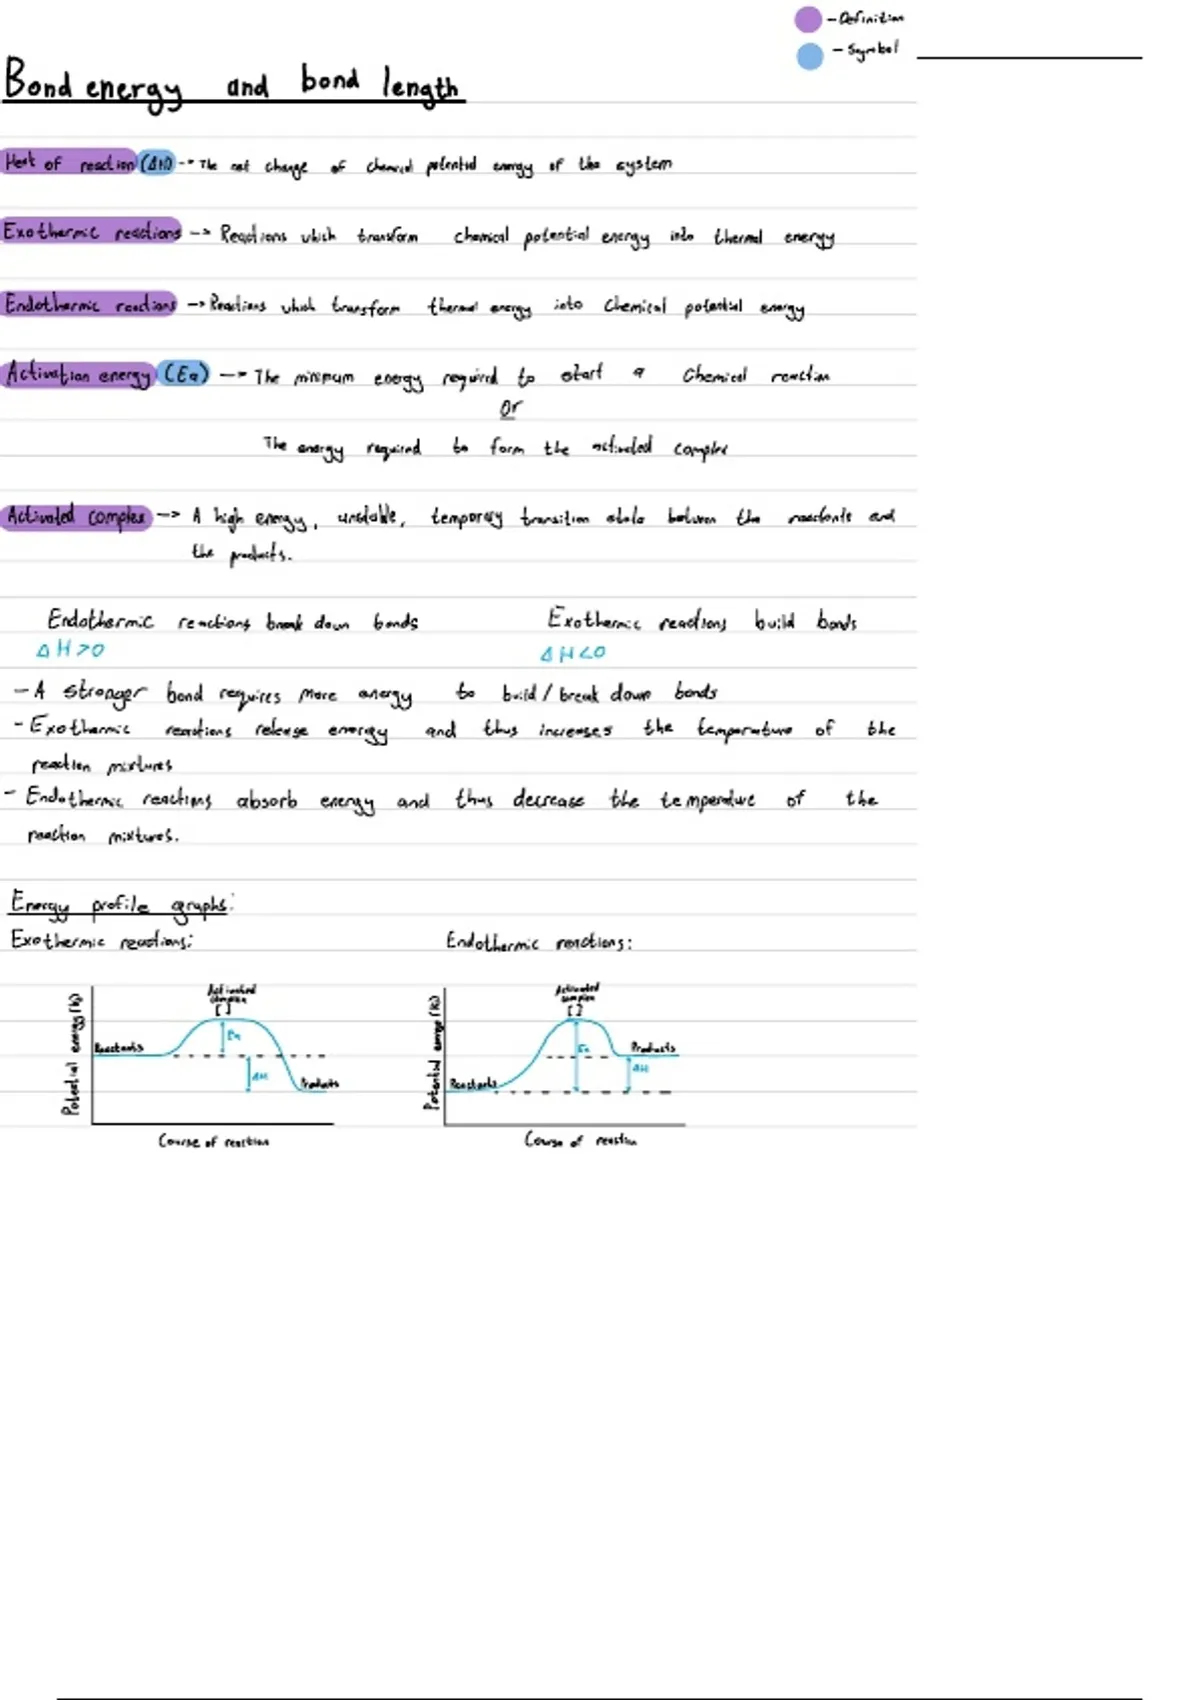 - Definition
- Symbol
Bond energy and bond length
Heat of reaction (ΔH) -> The net change of chemical potential energy of the system
Exothermic reactions --> Reactions which transform chemical potential energy into thermal energy
Endothermic reactions --> Reactions which transform thermal energy into chemical potential energy
Activation energy (Ea) --> The minimum energy required to start a chemical reaction
or
The energy required to form the activated complex
Activated complex --> A high energy, unstable, temporary transition state between the reactants and
the products.
Endothermic reactions break down bonds
Exothermic reactions build bonds
ΔH>0
ΔH<0
- A stronger bond requires more energy to build / break down bonds
- Exothermic reactions release energy and thus increases the temperature of the
reaction mixtures
- Endothermic reactions absorb energy and thus decrease the temperature of the
reaction mixtures.
Energy profile graphs:
Exothermic reactions:
Endothermic reactions:
Potential energy (kJ)
Activated
complex
[ ]
Reactants
Ea
ΔH
Products
Course of reaction
Potential energy (kJ)
Activated
complex
[ ]
Reactants
Ea
Products
ΔH
Course of reaction